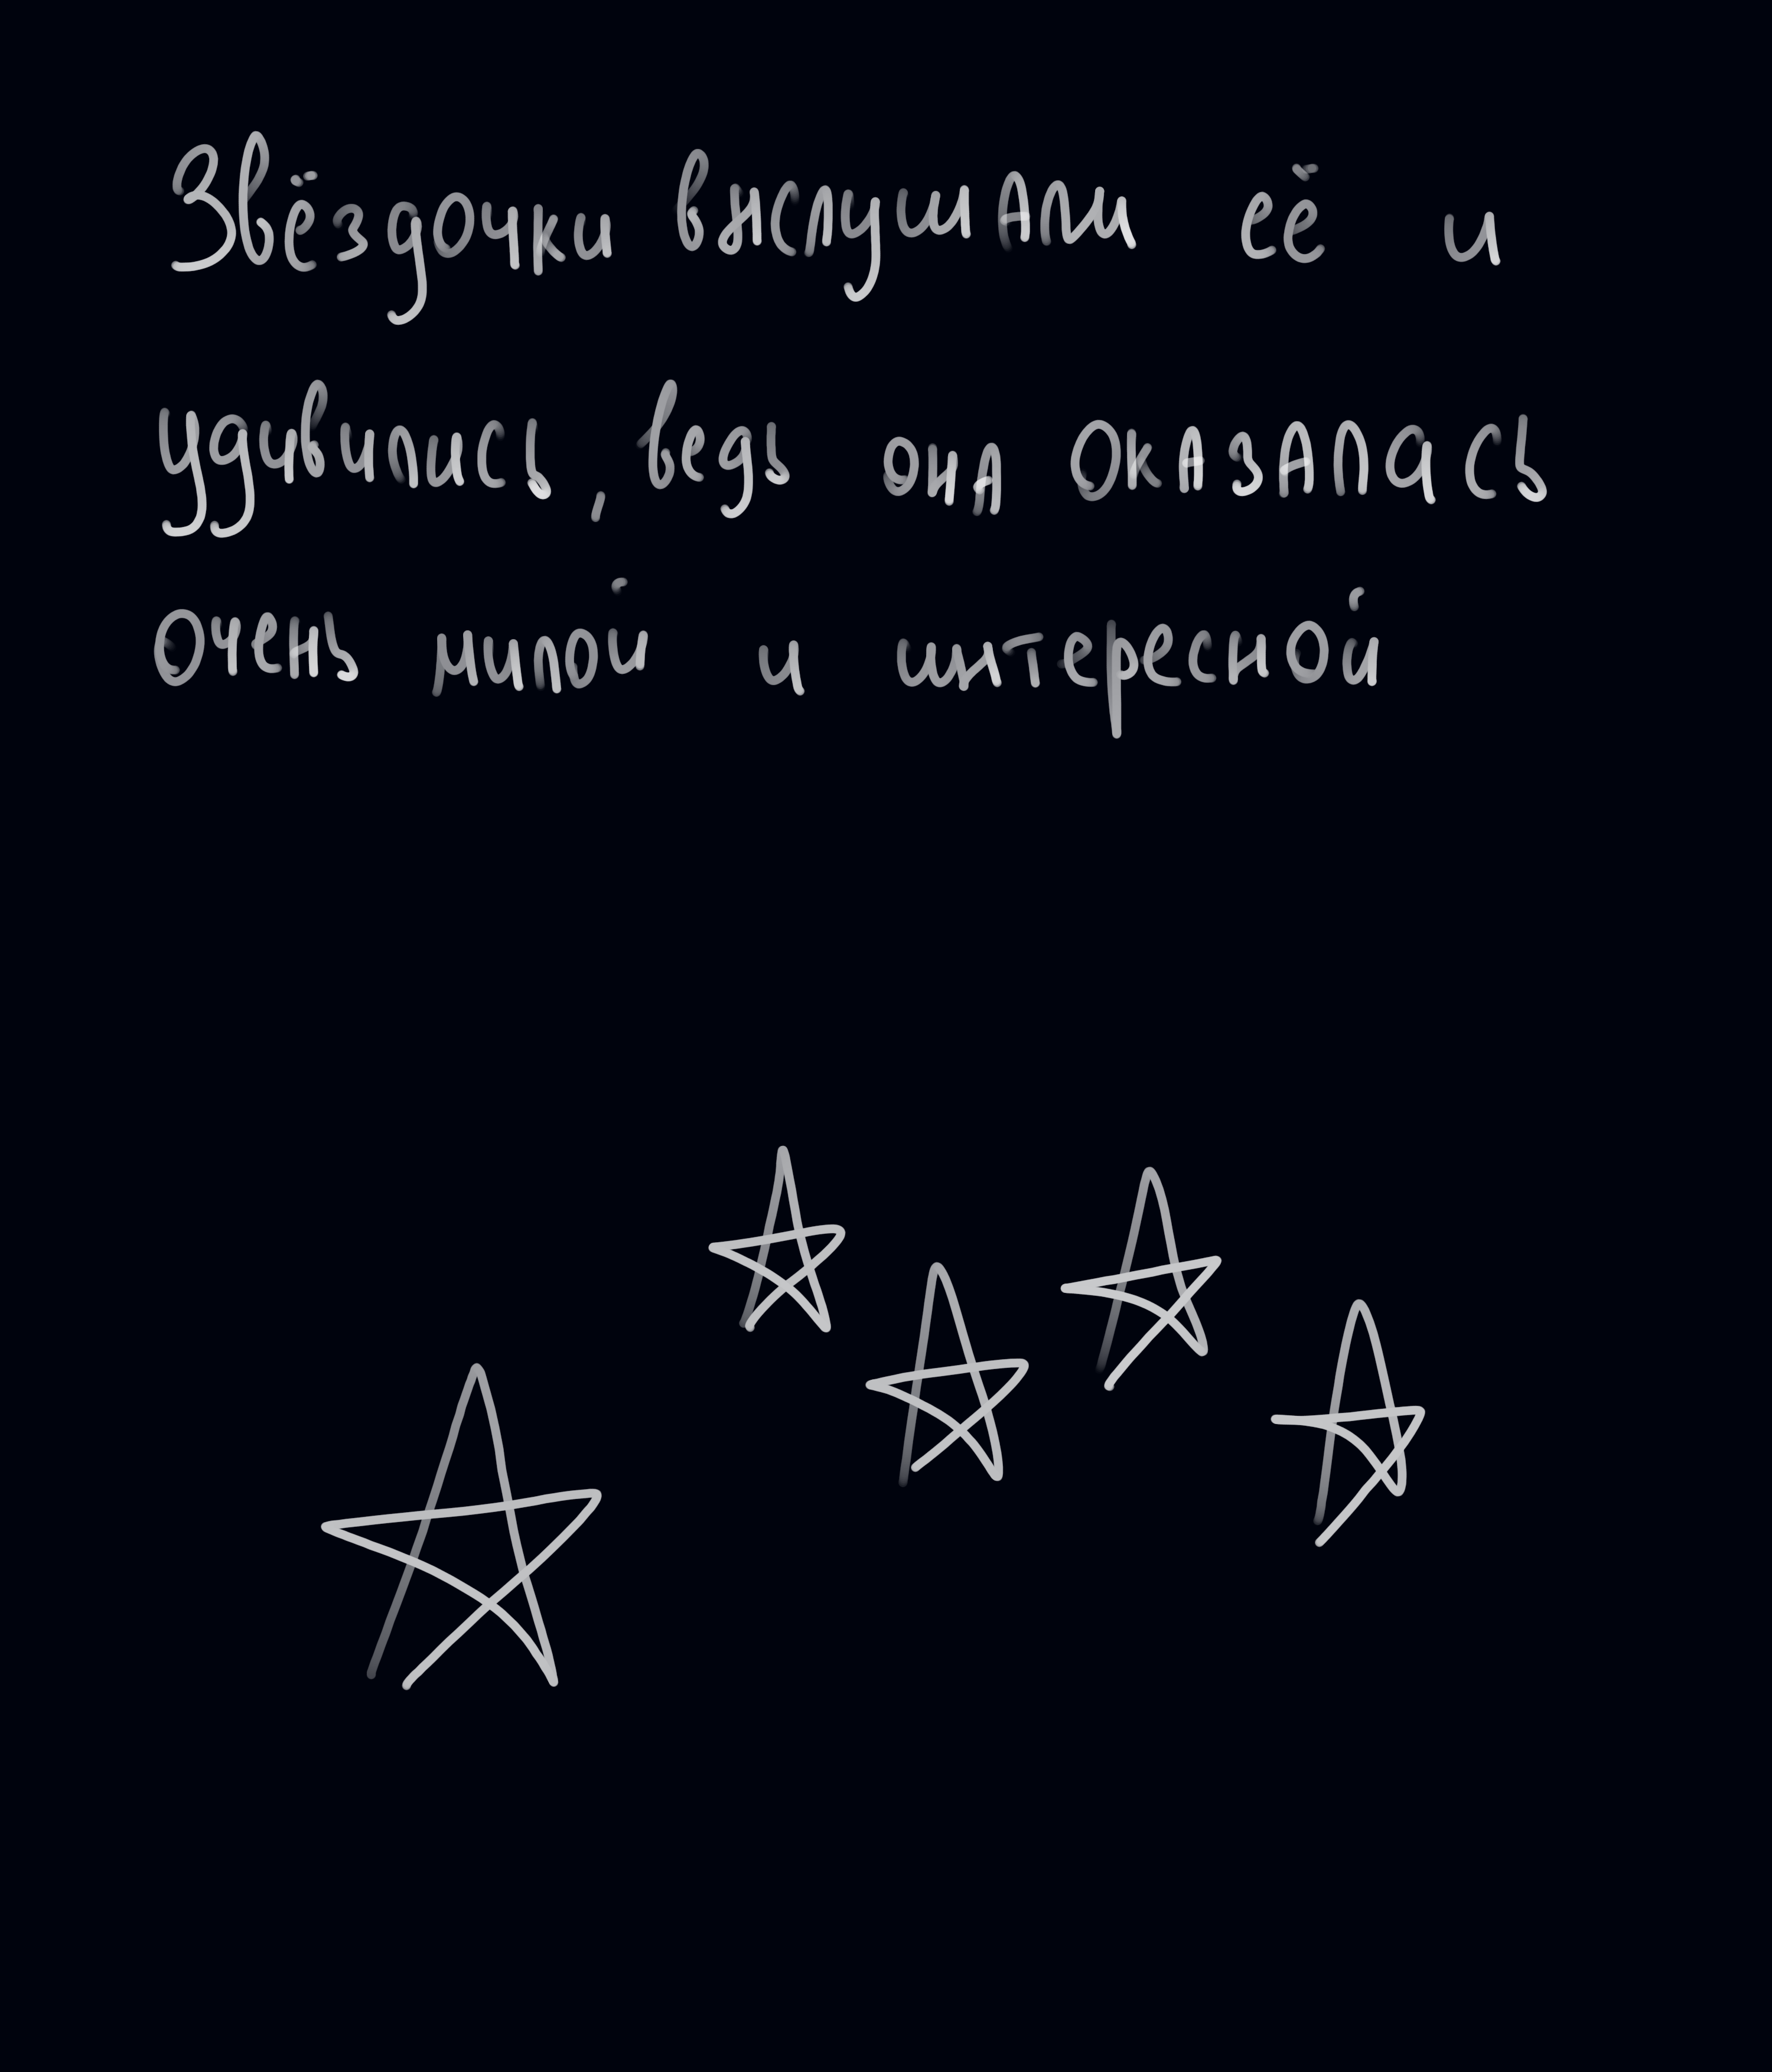 Звёздочки выслушали её и
удивились, ведь она оказалась
очень милой и интересной